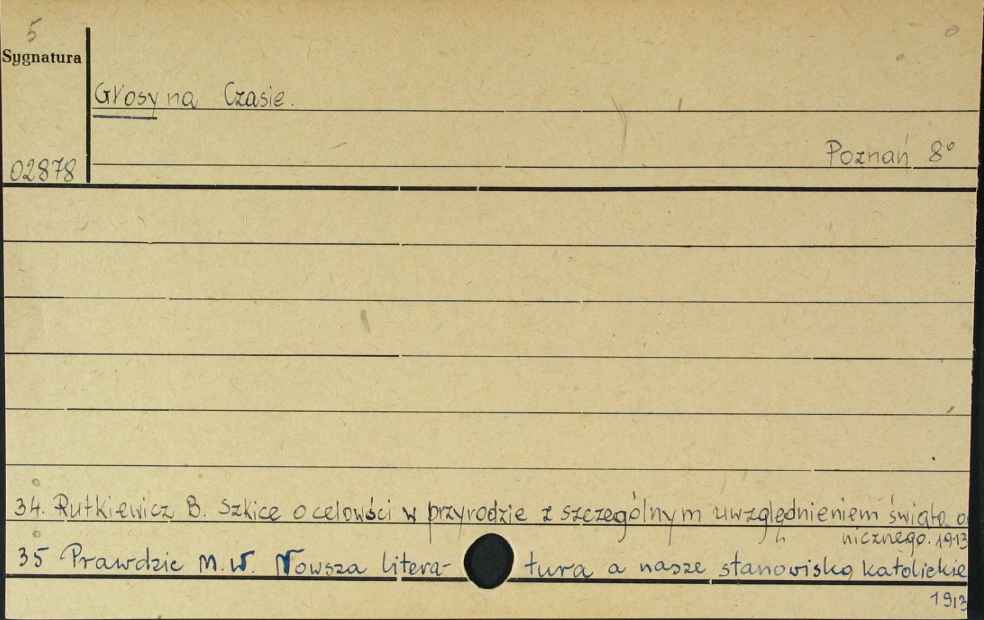 5
Sygnatura
Głosy na Czasie.
Poznań 8°
02878
34. Rutkiewicz B. Szkice o celowości w przyrodzie z szczególnym uwzględnieniem świata or
nicznego. 1913
35 Prawdzic M. W. Nowsza litera- tura a nasze stanowisko katolickie
1913